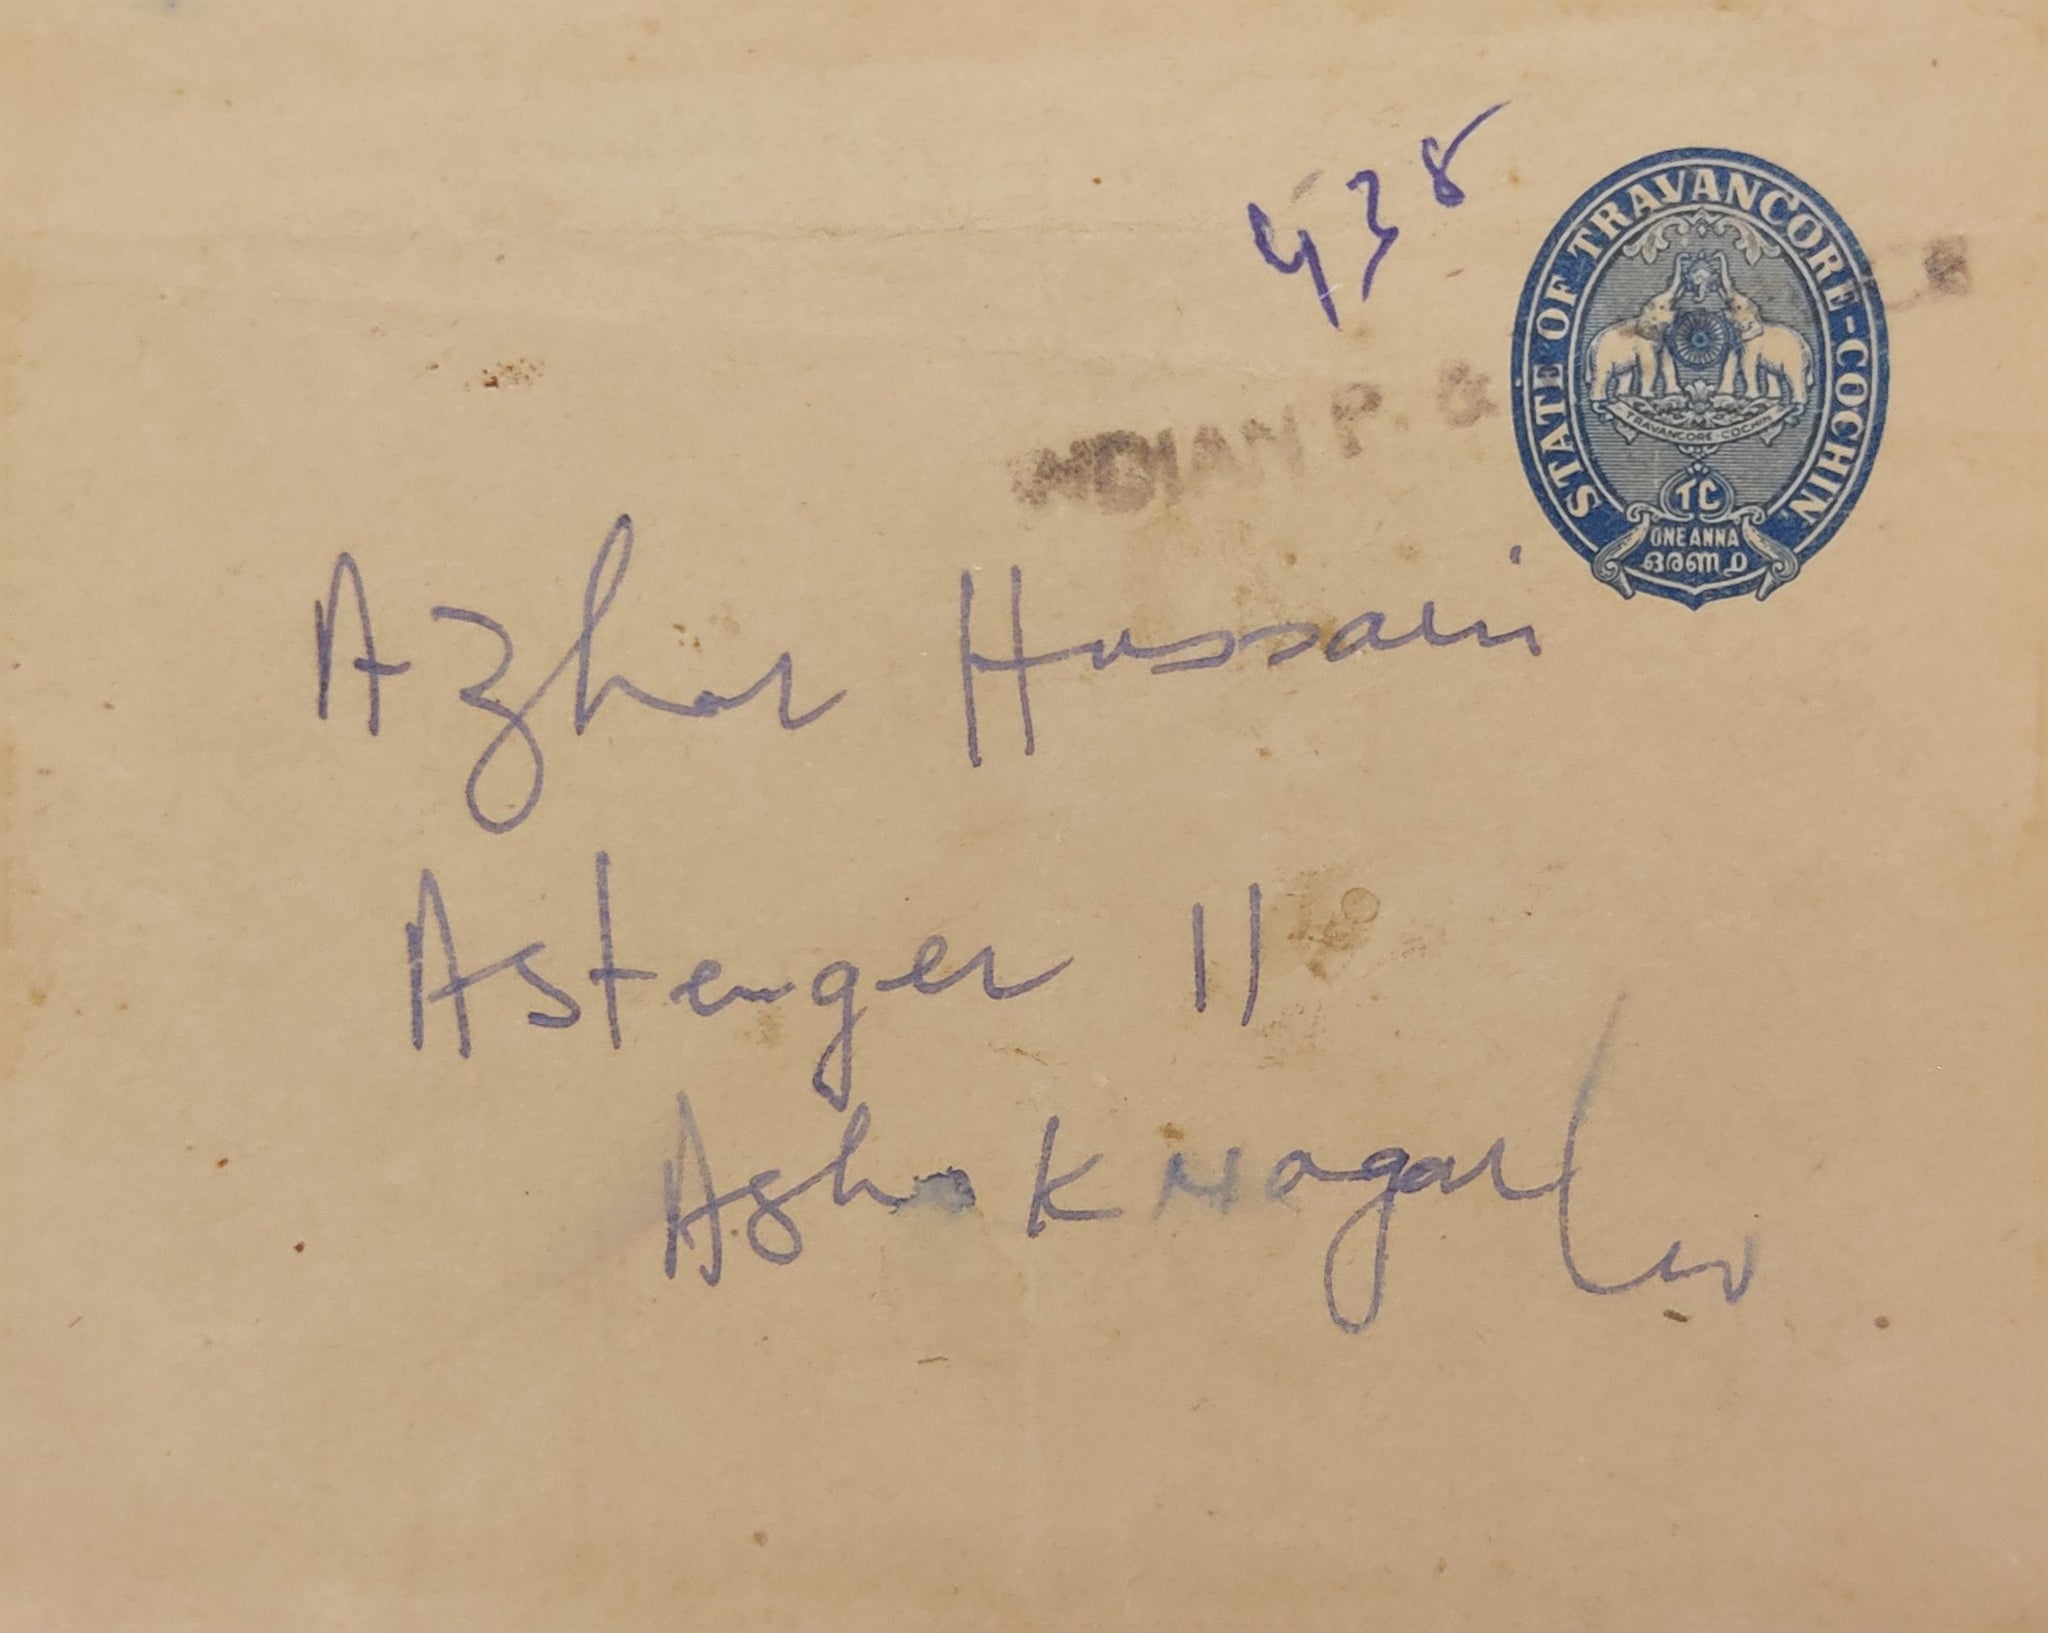 438
STATE OF TRAVANCORE-COCHIN
TRAVANCORE-COCHIN
TC
ONE ANNA
ഒരണ
INDIAN P. &
Azhar Hussain
Astenger 11
Ashok Nagar